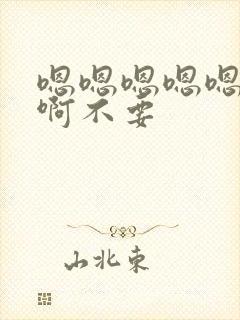 嗯嗯嗯嗯嗯
啊不要
山北东